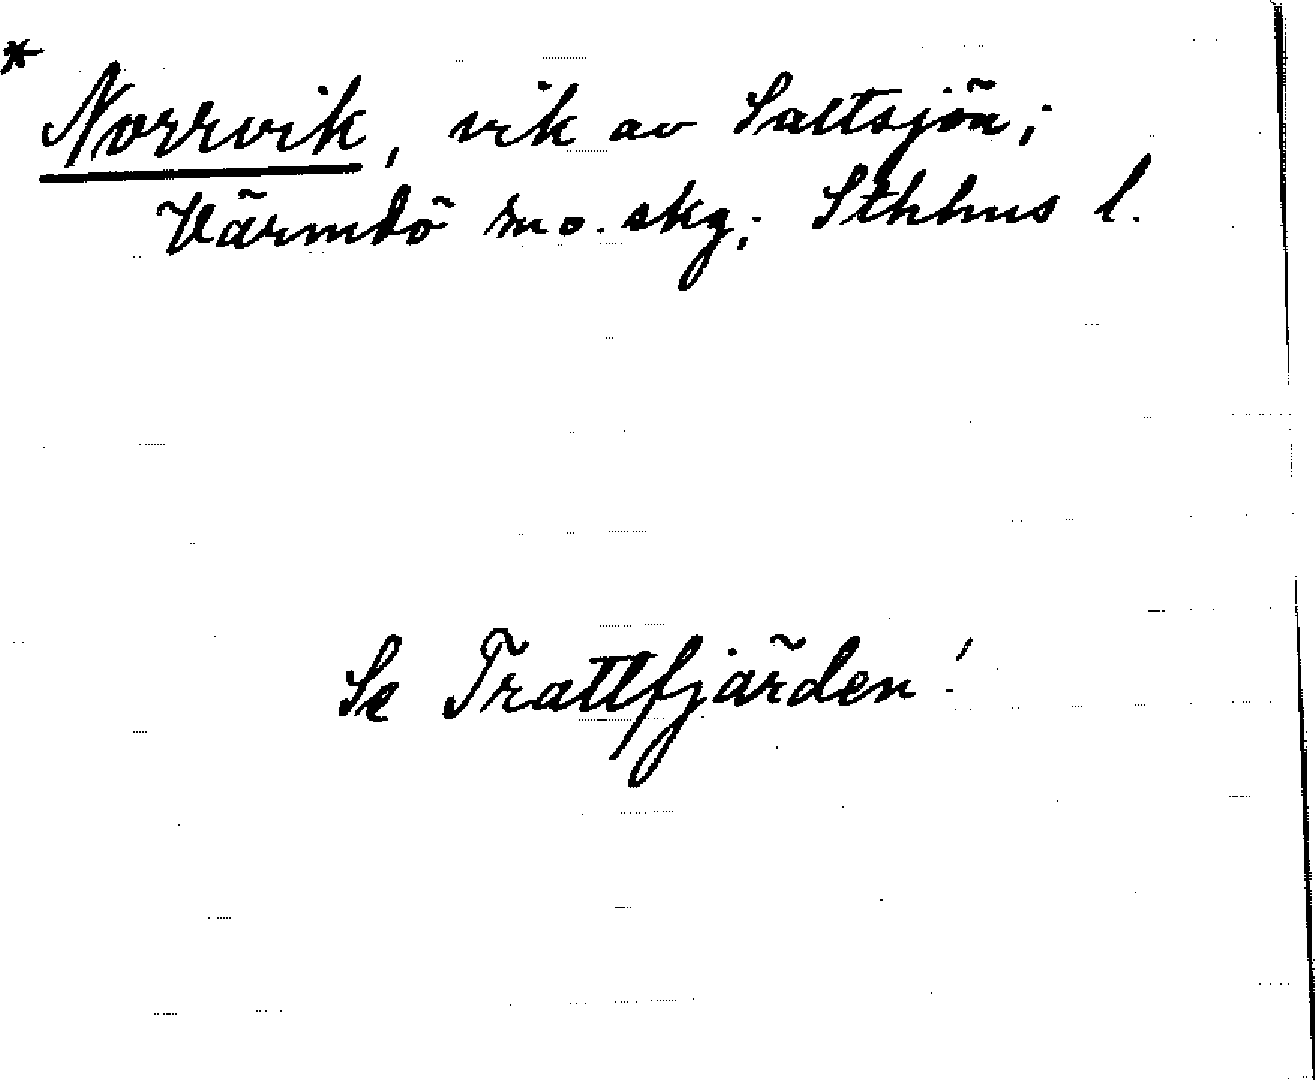 * Norrvik, vik av Saltsjön;
Värmdö sno. skg; Sthlms l.
Se Trattfjärden!